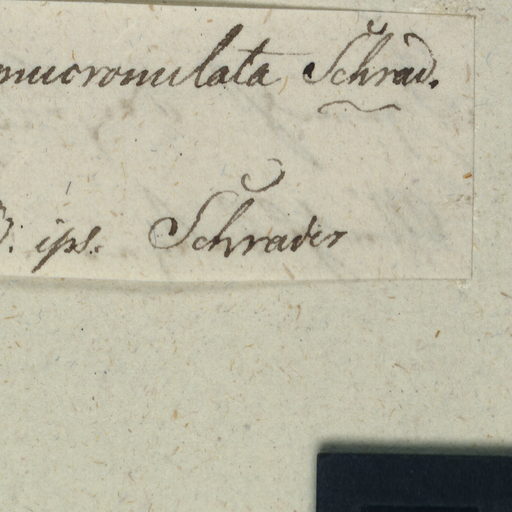 mucronulata Schrad.
D. ips. Schrader